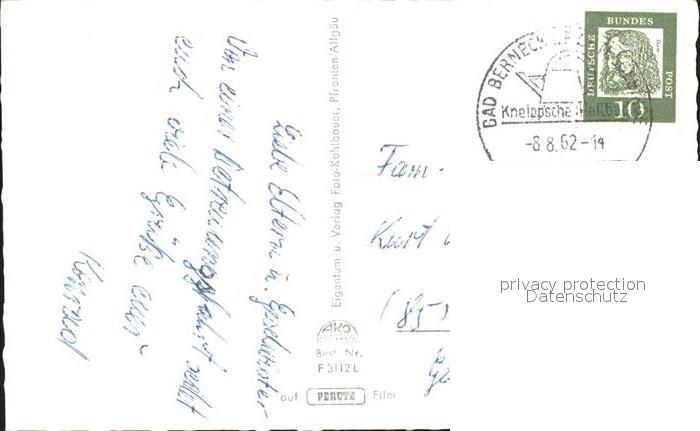 Liebe Eltern u. Geschwister
Von einer Betreuungsfahrt sendet
euch viele Grüße euer
Konrad
Eigentum u. Verlag Foto-Kohlbauer, Pfronten/Allgäu
AKO
Best. Nr.
F 3112 L
auf PERUTZ Film
Fam.
Kurt
(85)
BAD BERNECK
Kneippsche Heilb
-8.8.62-14
DEUTSCHE
BUNDES
POST
10
privacy protection
Datenschutz